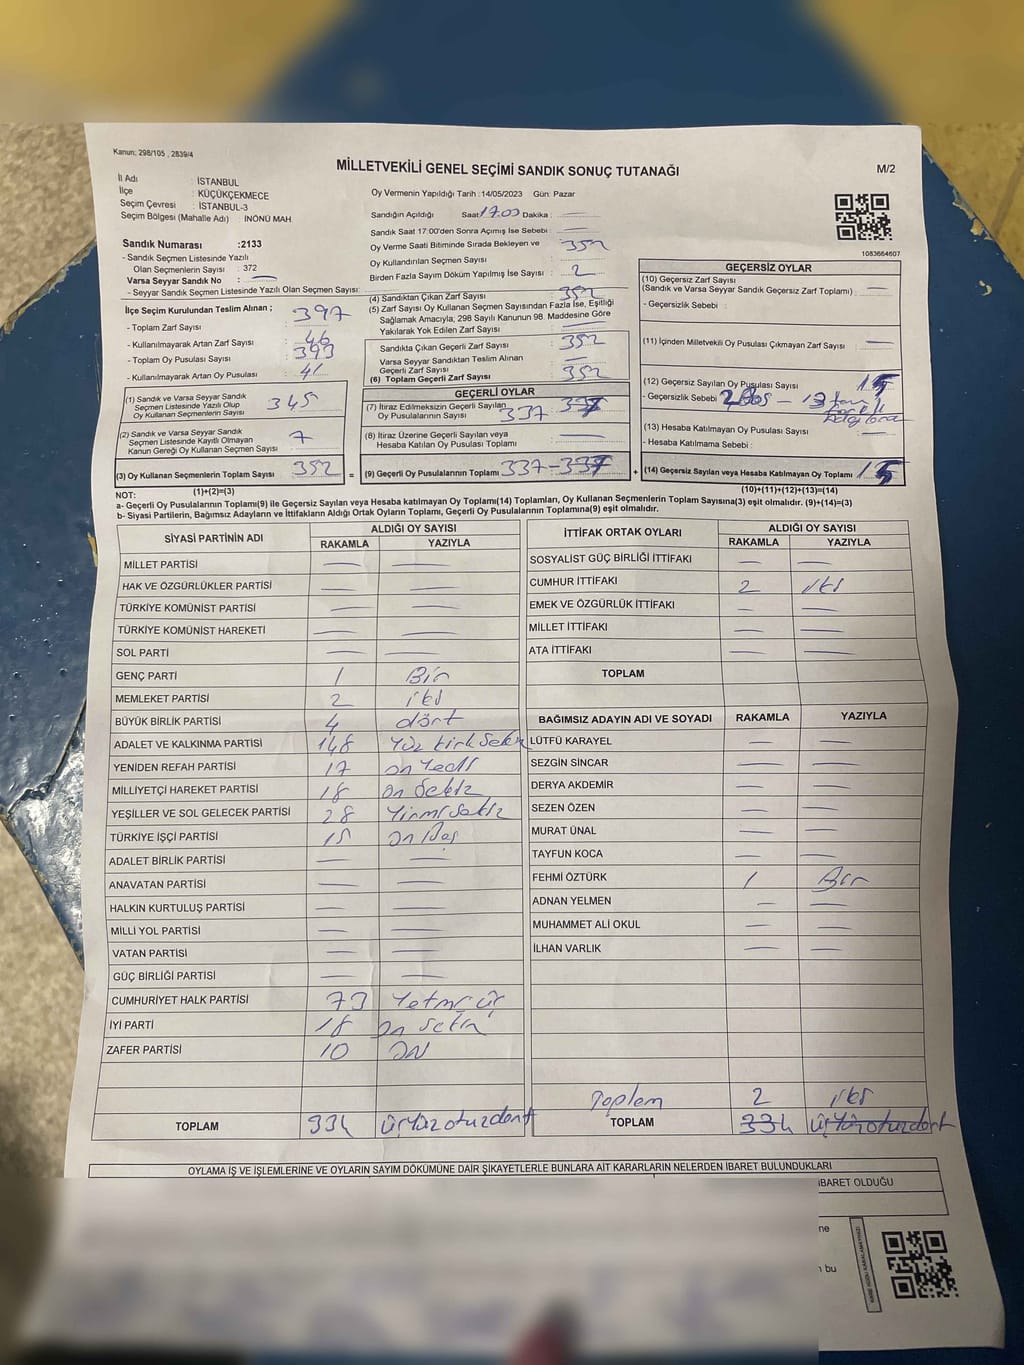 Kanun; 298/105 , 2839/4
MİLLETVEKİLİ GENEL SEÇİMİ SANDIK SONUÇ TUTANAĞI
M/2
İl Adı : İSTANBUL
İlçe : KÜÇÜKÇEKMECE
Seçim Çevresi : İSTANBUL-3
Seçim Bölgesi (Mahalle Adı) : İNÖNÜ MAH
Oy Vermenin Yapıldığı Tarih : 14/05/2023 Gün: Pazar
Sandığın Açıldığı Saat 17.00 Dakika : —
Sandık Saat 17:00'den Sonra Açımış İse Sebebi : —
Oy Verme Saati Bitiminde Sırada Bekleyen ve
Oy Kullandırılan Seçmen Sayısı : 352
Birden Fazla Sayım Döküm Yapılmış İse Sayısı : 2
1083664607
Sandık Numarası :2133
- Sandık Seçmen Listesinde Yazılı
Olan Seçmenlerin Sayısı : 372
Varsa Seyyar Sandık No : —
- Seyyar Sandık Seçmen Listesinde Yazılı Olan Seçmen Sayısı:
İlçe Seçim Kurulundan Teslim Alınan ;
- Toplam Zarf Sayısı : 397
- Kullanılmayarak Artan Zarf Sayısı : 46
- Toplam Oy Pusulası Sayısı : 393
- Kullanılmayarak Artan Oy Pusulası : 41
(1) Sandık ve Varsa Seyyar Sandık
Seçmen Listesinde Yazılı Olup
Oy Kullanan Seçmenlerin Sayısı : 345
(2) Sandık ve Varsa Seyyar Sandık
Seçmen Listesinde Kayıtlı Olmayan
Kanun Gereği Oy Kullanan Seçmen Sayısı : 7
(3) Oy Kullanan Seçmenlerin Toplam Sayısı : 352
(1)+(2)=(3)
(4) Sandıktan Çıkan Zarf Sayısı : 352
(5) Zarf Sayısı Oy Kullanan Seçmen Sayısından Fazla İse, Eşitliği
Sağlamak Amacıyla, 298 Sayılı Kanunun 98. Maddesine Göre
Yakılarak Yok Edilen Zarf Sayısı : —
Sandıkta Çıkan Geçerli Zarf Sayısı : 352
Varsa Seyyar Sandıktan Teslim Alınan
Geçerli Zarf Sayısı : —
(6) Toplam Geçerli Zarf Sayısı : 352
GEÇERLİ OYLAR
(7) İtiraz Edilmeksizin Geçerli Sayılan
Oy Pusulalarının Sayısı : 337 337
(8) İtiraz Üzerine Geçerli Sayılan veya
Hesaba Katılan Oy Pusulası Toplamı : —
= (9) Geçerli Oy Pusulalarının Toplamı : 337-337 +
GEÇERSİZ OYLAR
(10) Geçersiz Zarf Sayısı
(Sandık ve Varsa Seyyar Sandık Geçersiz Zarf Toplamı) : —
- Geçersizlik Sebebi :
(11) İçinden Milletvekili Oy Pusulası Çıkmayan Zarf Sayısı : —
(12) Geçersiz Sayılan Oy Pusulası Sayısı : 15
- Geçersizlik Sebebi :
(13) Hesaba Katılmayan Oy Pusulası Sayısı : —
- Hesaba Katılmama Sebebi :
(14) Geçersiz Sayılan veya Hesaba Katılmayan Oy Toplamı : 15
(10)+(11)+(12)+(13)=(14)
NOT:
a- Geçerli Oy Pusulalarının Toplamı(9) ile Geçersiz Sayılan veya Hesaba katılmayan Oy Toplamı(14) Toplamları, Oy Kullanan Seçmenlerin Toplam Sayısına(3) eşit olmalıdır. (9)+(14)=(3)
b- Siyasi Partilerin, Bağımsız Adayların ve İttifakların Aldığı Ortak Oyların Toplamı, Geçerli Oy Pusulalarının Toplamına(9) eşit olmalıdır.
SİYASİ PARTİNİN ADI ALDIĞI OY SAYISI
RAKAMLA YAZIYLA
MİLLET PARTİSİ — —
HAK VE ÖZGÜRLÜKLER PARTİSİ — —
TÜRKİYE KOMÜNİST PARTİSİ — —
TÜRKİYE KOMÜNİST HAREKETİ — —
SOL PARTİ — —
GENÇ PARTİ 1 Bir
MEMLEKET PARTİSİ 2 iki
BÜYÜK BİRLİK PARTİSİ 4 dört
ADALET VE KALKINMA PARTİSİ 148 Yüz kırk sekiz
YENİDEN REFAH PARTİSİ 17 on Yedi
MİLLİYETÇİ HAREKET PARTİSİ 18 on Sekiz
YEŞİLLER VE SOL GELECEK PARTİSİ 28 Yirmi Sekiz
TÜRKİYE İŞÇİ PARTİSİ 15 on Beş
ADALET BİRLİK PARTİSİ — —
ANAVATAN PARTİSİ — —
HALKIN KURTULUŞ PARTİSİ — —
MİLLİ YOL PARTİSİ — —
VATAN PARTİSİ — —
GÜÇ BİRLİĞİ PARTİSİ — —
CUMHURİYET HALK PARTİSİ 73 Yetmiş üç
İYİ PARTİ 18 on sekiz
ZAFER PARTİSİ 10 ON
TOPLAM 334 üçYüz otuzdört
İTTİFAK ORTAK OYLARI ALDIĞI OY SAYISI
RAKAMLA YAZIYLA
SOSYALİST GÜÇ BİRLİĞİ İTTİFAKI — —
CUMHUR İTTİFAKI 2 iki
EMEK VE ÖZGÜRLÜK İTTİFAKI — —
MİLLET İTTİFAKI — —
ATA İTTİFAKI — —
TOPLAM
BAĞIMSIZ ADAYIN ADI VE SOYADI RAKAMLA YAZIYLA
LÜTFÜ KARAYEL — —
SEZGİN SİNCAR — —
DERYA AKDEMİR — —
SEZEN ÖZEN — —
MURAT ÜNAL — —
TAYFUN KOCA — —
FEHMİ ÖZTÜRK 1 Bir
ADNAN YELMEN — —
MUHAMMET ALİ OKUL — —
İLHAN VARLIK — —
Toplam 2 iki
TOPLAM 334 üçYüzotuzdört
OYLAMA İŞ VE İŞLEMLERİNE VE OYLARIN SAYIM DÖKÜMÜNE DAİR ŞİKAYETLERLE BUNLARA AİT KARARLARIN NELERDEN İBARET BULUNDUKLARI
İBARET OLDUĞU
ne
bu